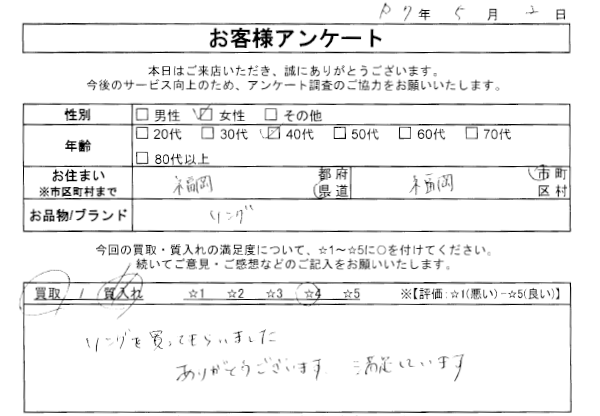 R7年 5月 2日
お客様アンケート
本日はご来店いただき、誠にありがとうございます。
今後のサービス向上のため、アンケート調査のご協力をお願いいたします。
性別 □男性 ☑女性 □その他
年齢 □20代 □30代 ☑40代 □50代 □60代 □70代
□80代以上
お住まい ※市区町村まで 福岡 都府県道 福岡 市町区村
お品物/ブランド リング
今回の買取・質入れの満足度について、☆1～☆5に○を付けてください。
続いてご意見・ご感想などのご記入をお願いいたします。
買取 / 質入れ ☆1 ☆2 ☆3 ☆4 ☆5 ※【評価:☆1(悪い)−☆5(良い)】
リングを買ってもらいました
ありがとうございます 満足しています